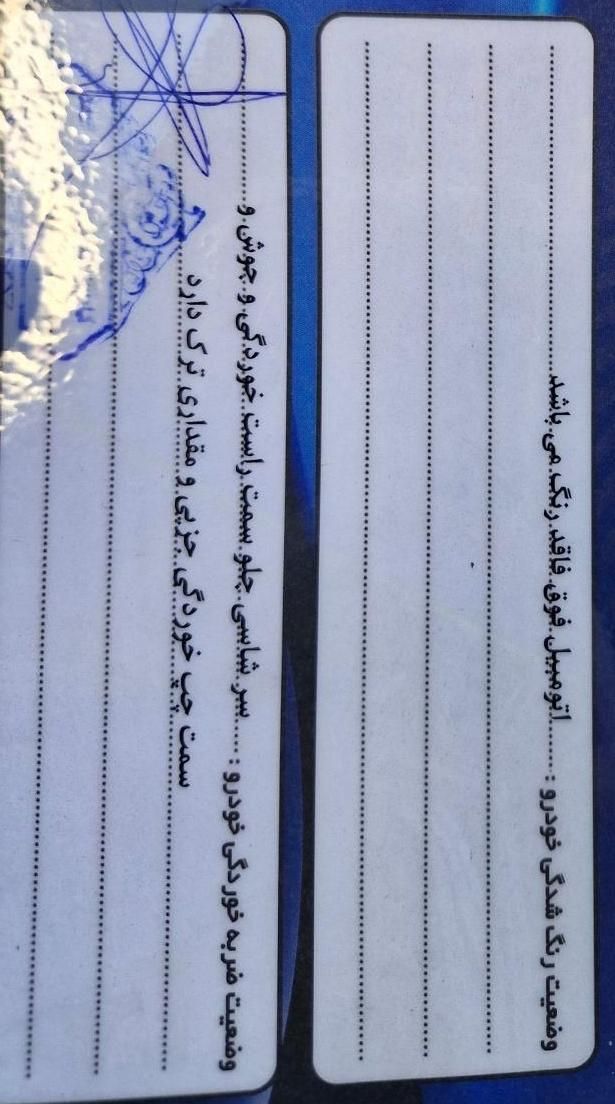 وضعیت رنگ شدگی خودرو : ......اتومبیل فوق فاقد رنگ می باشد
وضعیت ضربه خوردگی خودرو : ....سر شاسی جلو سمت راست خوردگی و جوش و
سمت چپ خوردگی جزیی و مقداری ترک دارد